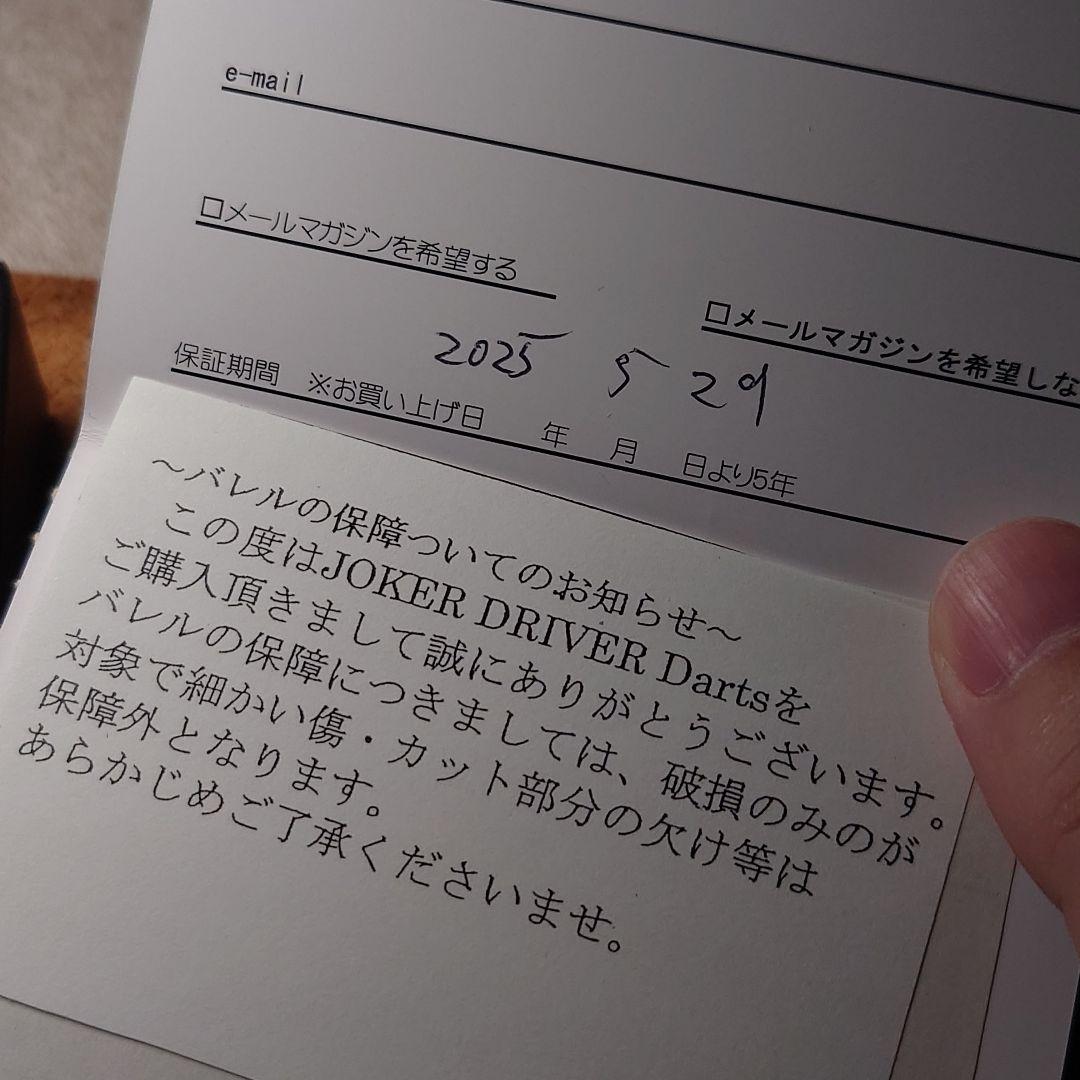 e-mail
□メールマガジンを希望する
□メールマガジンを希望しな
2025 5 29
保証期間 ※お買い上げ日 年 月 日より5年
～バレルの保障ついてのお知らせ～
この度はJOKER DRIVER Dartsを
ご購入頂きまして誠にありがとうございます。
バレルの保障につきましては、破損のみのが
対象で細かい傷・カット部分の欠け等は
保障外となります。
あらかじめご了承くださいませ。